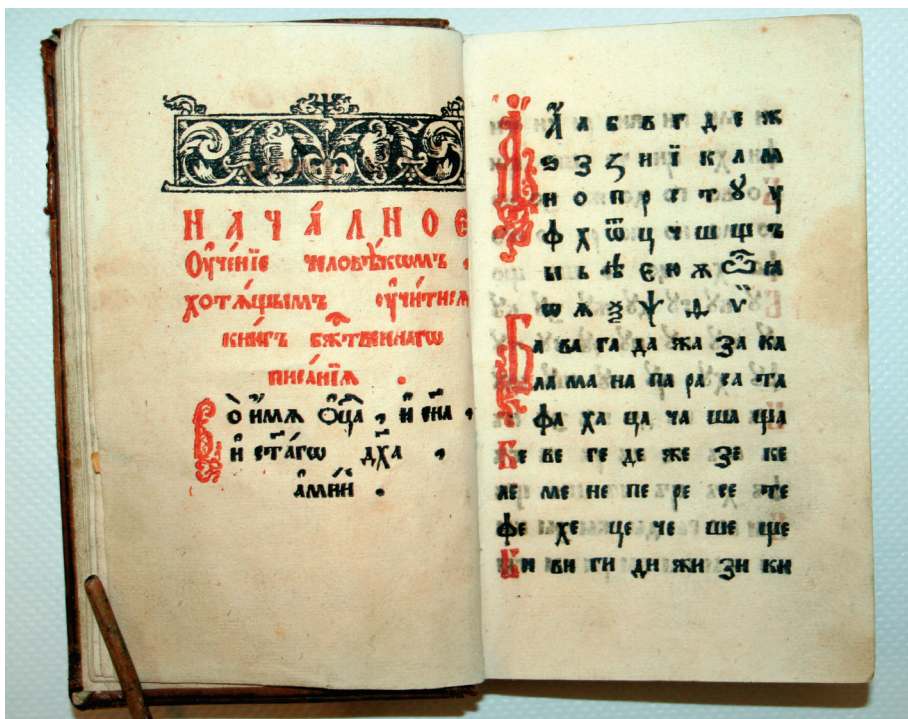 НАЧА́ЛНОЕ
Оу҆че́нїе человѣ́кѡмъ ,
хотѧ́щымъ оу҆чи́тисѧ
кни́гъ бж҃твеннагѡ
писа́нїѧ .
Во и҆́мѧ Оц҃а , и҆ сн҃а ,
и҆ ст҃а́гѡ дх҃а ,
а҆ми́нь .
А҆ а б в г д е ж
ѕ з ꙁ и ї к л м
н о п р с т ꙋ у
ф х ѿ ц ч ш щ ъ
ы ь ѣ є ю ѫ ѽ ꙗ
ѡ ѧ ѯ ѱ ѵ
Ба ва га да жа за ка
ла ма на па ра са та
фа ха ца ча ша ща
Бе ве ге де же зе ке
ле ме не пе ре се те
фе хе це че ше ще
Би ви ги ди жи зи ки